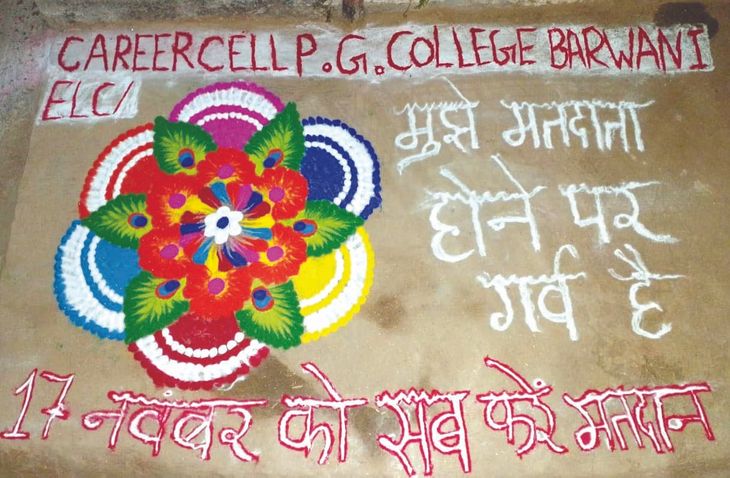 CAREER CELL P.G. COLLEGE BARWANI
ELC/
मुझे मतदाता
होने पर
गर्व है
17 नवंबर को सब करें मतदान